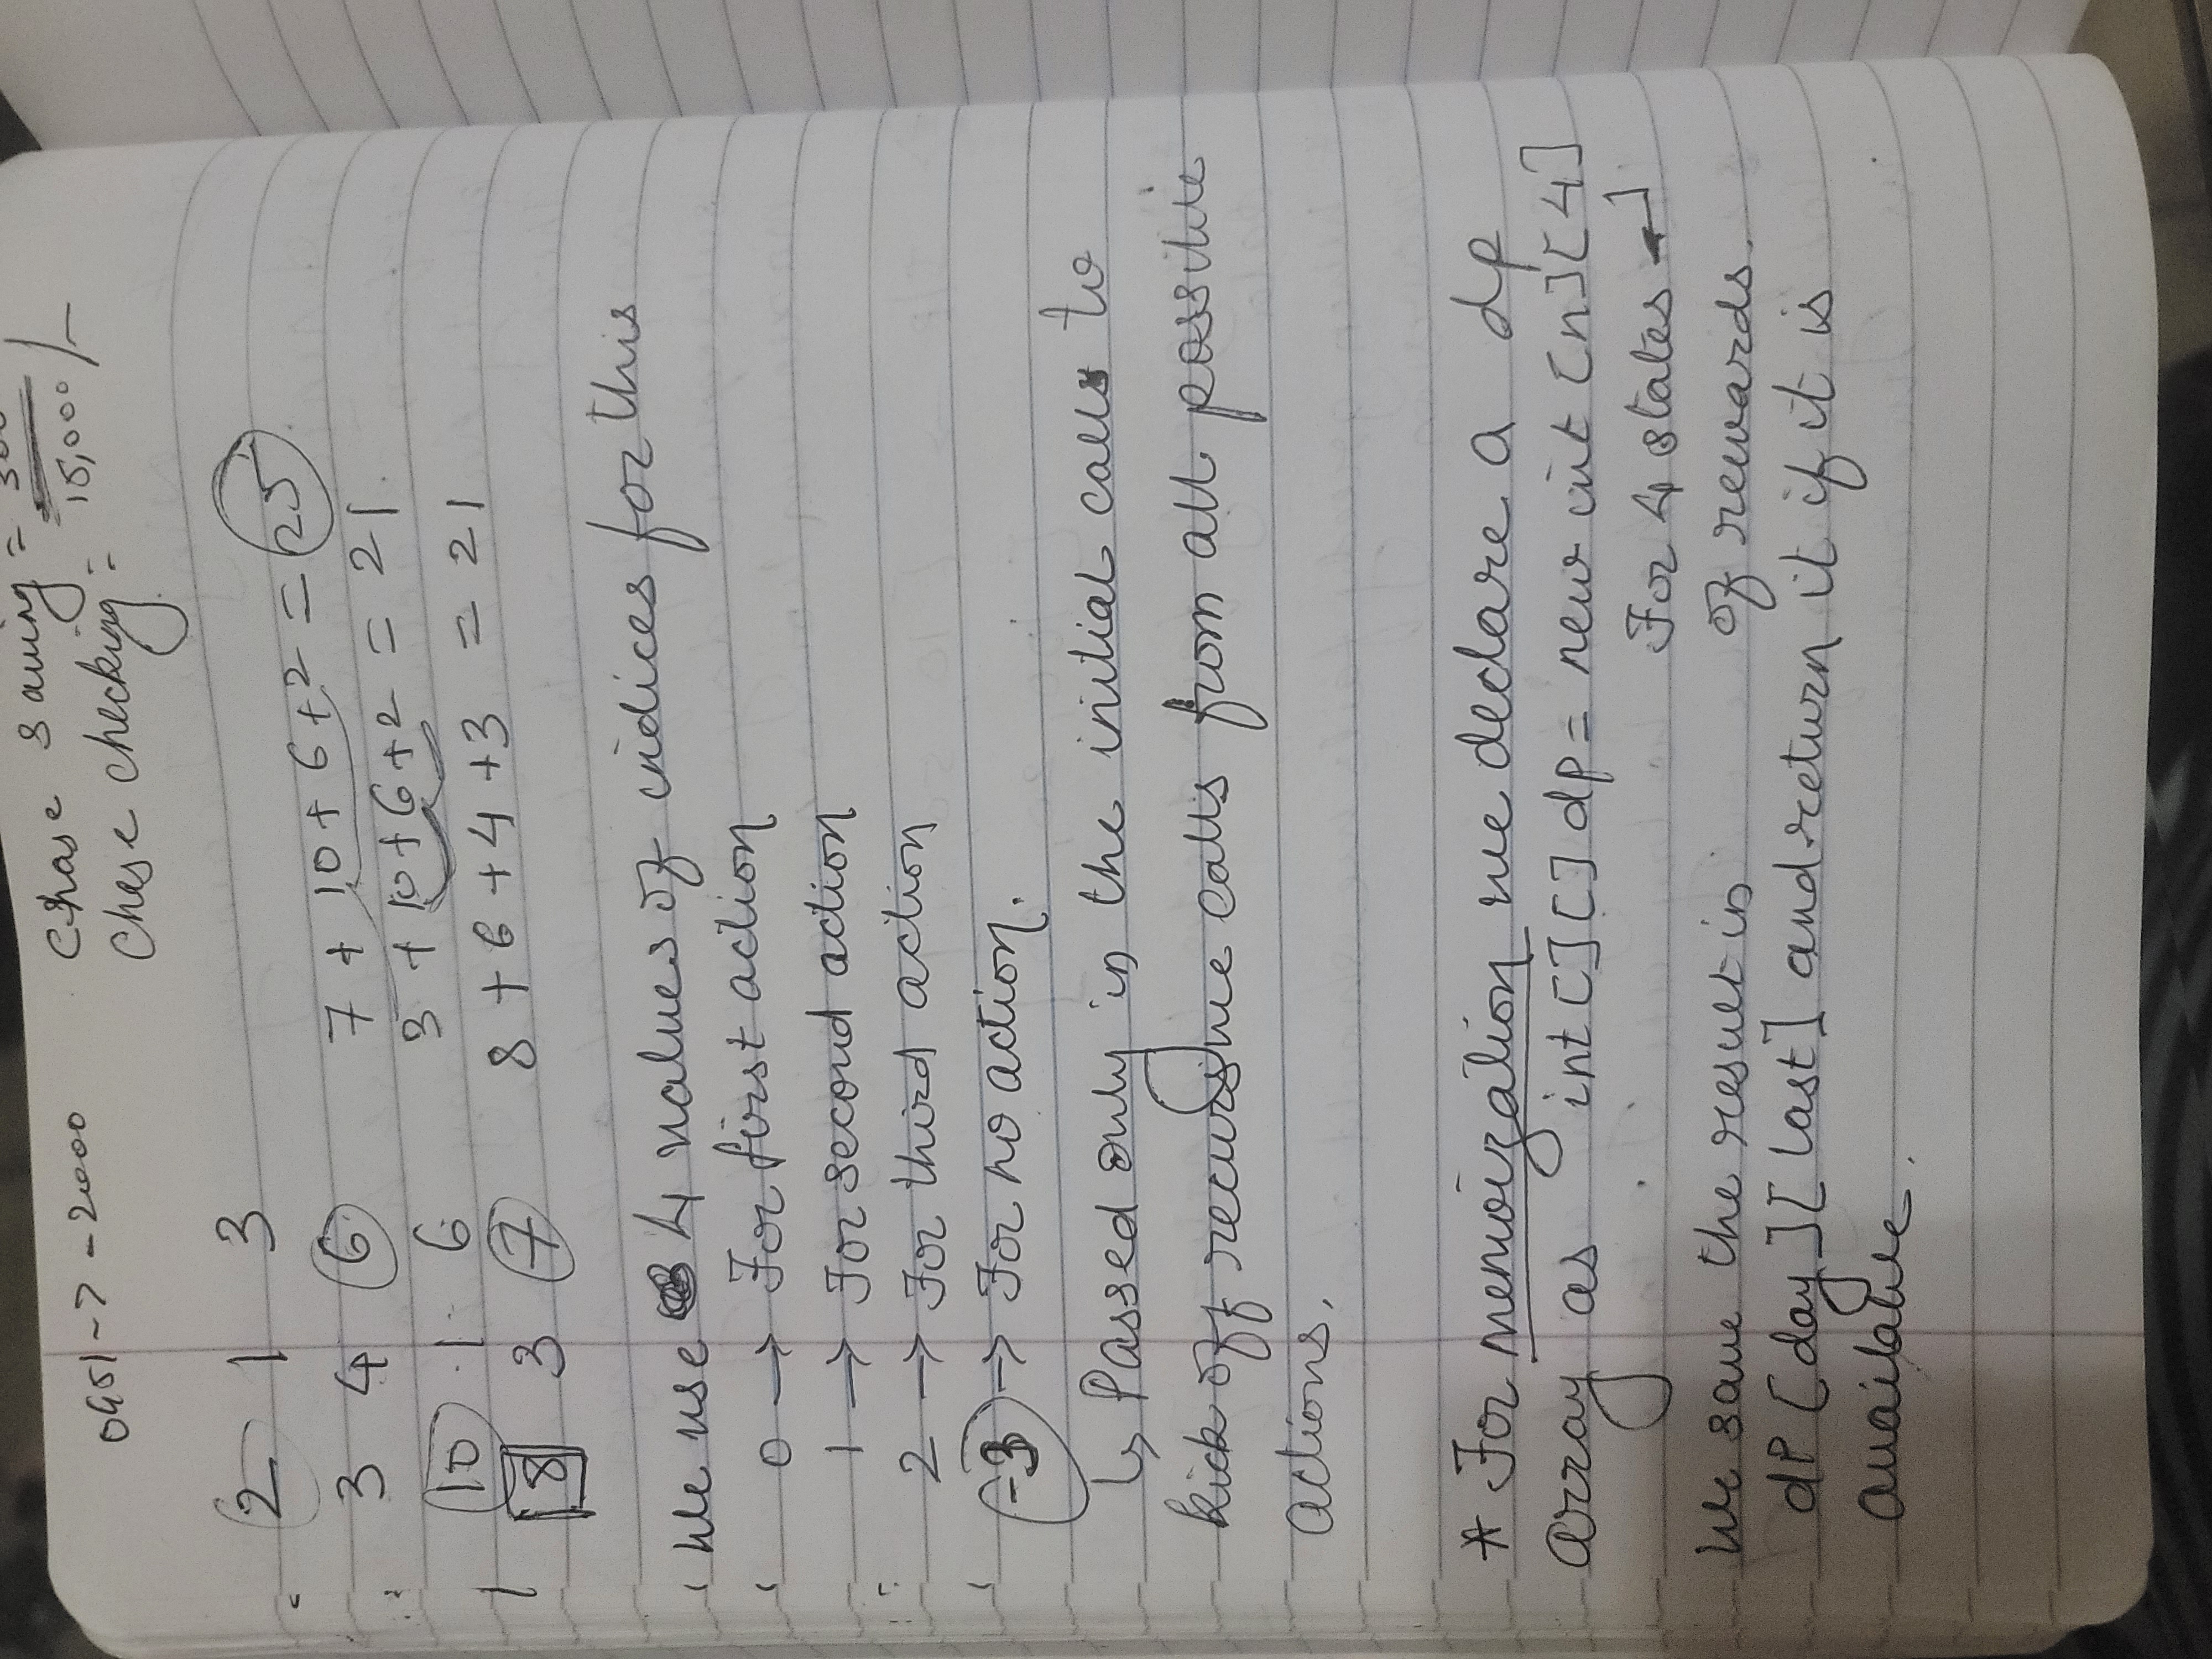 0951 -> -2000
Chase saving =
15,000/-
Chase checking =
2 1 3
3 4 6
10 1 6
8 3 7
7 + 10 + 6 + 2 = 25
3 + 10 + 6 + 2 = 21
8 + 6 + 4 + 3 = 21
We use 4 values of indices for this
0 → For first action
1 → For second action
2 → For third action
-3 → For no action.
↳ Passed only in the initial call to
kick off recursive calls from all possible
actions.
* For memoization we declare a dp
array as int [][] dp = new int [n][4]
For 4 states
We save the result in of rewards.
dp [day][last] and return it if it is
available.